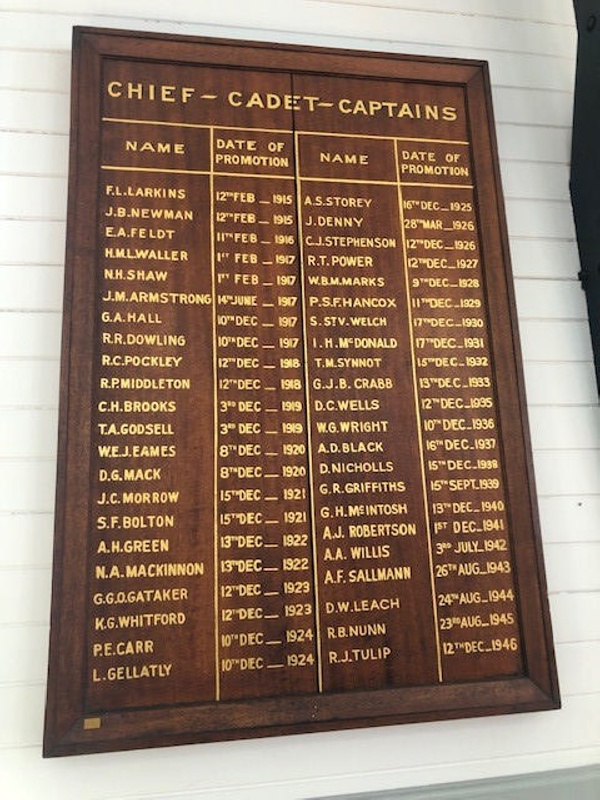 CHIEF – CADET – CAPTAINS
NAME DATE OF PROMOTION
F.L. LARKINS 12TH FEB — 1915
J.B. NEWMAN 12TH FEB — 1915
E.A. FELDT 11TH FEB — 1916
H.M.L. WALLER 1ST FEB — 1917
N.H. SHAW 1ST FEB — 1917
J.M. ARMSTRONG 14TH JUNE — 1917
G.A. HALL 10TH DEC — 1917
R.R. DOWLING 10TH DEC — 1917
R.C. POCKLEY 12TH DEC — 1918
R.P. MIDDLETON 12TH DEC — 1918
C.H. BROOKS 3RD DEC — 1919
T.A. GODSELL 3RD DEC — 1919
W.E.J. EAMES 8TH DEC — 1920
D.G. MACK 8TH DEC — 1920
J.C. MORROW 15TH DEC — 1921
S.F. BOLTON 15TH DEC — 1921
A.H. GREEN 13TH DEC — 1922
N.A. MACKINNON 13TH DEC — 1922
G.G.O. GATAKER 12TH DEC — 1923
K.G. WHITFORD 12TH DEC — 1923
P.E. CARR 10TH DEC — 1924
L. GELLATLY 10TH DEC — 1924
NAME DATE OF PROMOTION
A.S. STOREY 16TH DEC — 1925
J. DENNY 28TH MAR — 1926
C.J. STEPHENSON 12TH DEC — 1926
R.T. POWER 12TH DEC — 1927
W.B.M. MARKS 9TH DEC — 1928
P.S.F. HANCOX 11TH DEC — 1929
S. ST V. WELCH 17TH DEC — 1930
I.H. McDONALD 17TH DEC — 1931
T.M. SYNNOT 15TH DEC — 1932
G.J.B. CRABB 13TH DEC — 1933
D.C. WELLS 12TH DEC — 1935
W.G. WRIGHT 10TH DEC — 1936
A.D. BLACK 16TH DEC — 1937
D. NICHOLLS 15TH DEC — 1938
G.R. GRIFFITHS 15TH SEPT. 1939
G.H. McINTOSH 13TH DEC — 1940
A.J. ROBERTSON 1ST DEC — 1941
A.A. WILLIS 3RD JULY — 1942
A.F. SALLMANN 26TH AUG — 1943
D.W. LEACH 24TH AUG — 1944
R.B. NUNN 23RD AUG — 1945
R.J. TULIP 12TH DEC — 1946